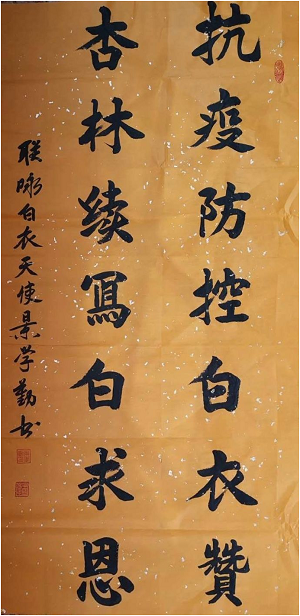 抗疫防控白衣赞
杏林续写白求恩
联咏白衣天使景学勤书